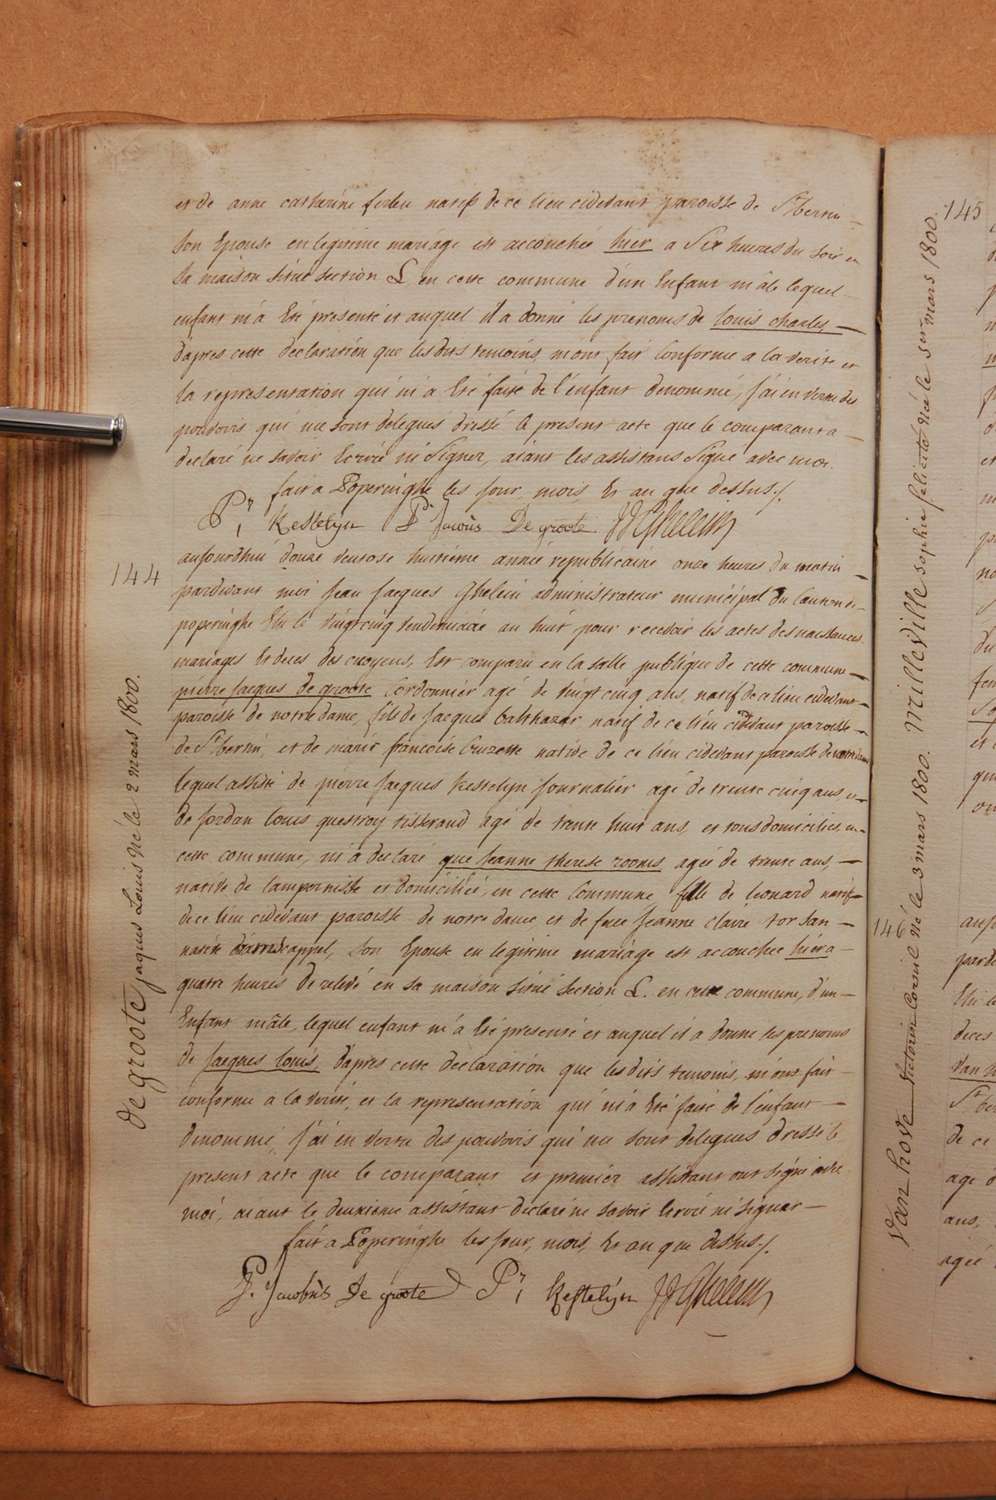 et de anne catharine natif de ce lieu cidevant paroisse de St bertin
son Epouse en legitime mariage est accouchée hier a six heures du soir en
sa maison situé section C. en cette commune d'un Enfant mâle lequel
enfant m'a Eté presenté et auquel il a donné les prenoms de Louis charles
d'apres cette declaration que les dits temoins m'ont fait Conforme a la verité et
la representation qui m'a Eté faite de l'enfant denommé, j'ai en vertu des
pouvoirs qui me sont delegués dressé le present acte que le comparant a
declaré ne savoir Ecrire ni Signer, aiant les assistans Signé avec moi
fait a Poperinghe les jour, mois Et an que dessus./.
Pr Kestelijn P. Jacobus De groote JJ Ghelein
144
aujourdhui douze ventose huitieme année republicaine onze heures du matin
pardevant moi Jean Jacques Ghelein administrateur municipal du Canton de
poperinghe Elu le vingtcinq vendemiaire an huit pour recevoir les actes des naissances
mariages Et deces des citoyens, Est comparu en la salle publique de cette commune
pierre Jacques de groote Cordonnier agé de vingtcinq ans, natif de ce lieu cidevant
paroisse de notre dame, fils de Jacques balthazar natif de ce lieu cidevant paroisse
de St bertin, et de marie francoise Cruzette native de ce lieu cidevant paroisse de notre dame
lequel assisté de pierre Jacques Kestelijn Journalier agé de trente cinq ans et
de Jordan Louis questroy tisserand agé de trente huit ans, et tous domiciliés en
cette commune, m'a declaré que Jeanne therese rooms, agée de trente ans,
native de lampernisse et domiciliée en cette Commune fille de Leonard natif
de ce lieu cidevant paroisse de notre dame et de feue Jeanne Claire
native son Epouse en legitime mariage est accouchée hier a
quatre heures de relevé en sa maison situé section C. en cette commune, d'un
Enfant mâle, lequel enfant m'a Eté presenté et auquel il a donné les prenoms
de Jacques Louis, d'apres cette declaration que les dits temoins, m'ont fait
conforme à la verité, et la representation qui m'a Eté faite de l'enfant
denommé, j'ai en vertu des pouvoirs qui me sont delegués dressé le
present acte que le comparant et premier assistant ont signé avec
moi, aiant le deuxieme assistant declaré ne savoir Ecrire ni signer
fait a Poperinghe les jour, mois, Et an que dessus./.
P. Jacobus De groote Pr Kestelijn JJ Ghelein
de groote jaques Louis né le 2 mars 1800.
145
Milleville sophie felicité née le 3 mars 1800.
146
Van hove Cornil né le 3 mars 1800.